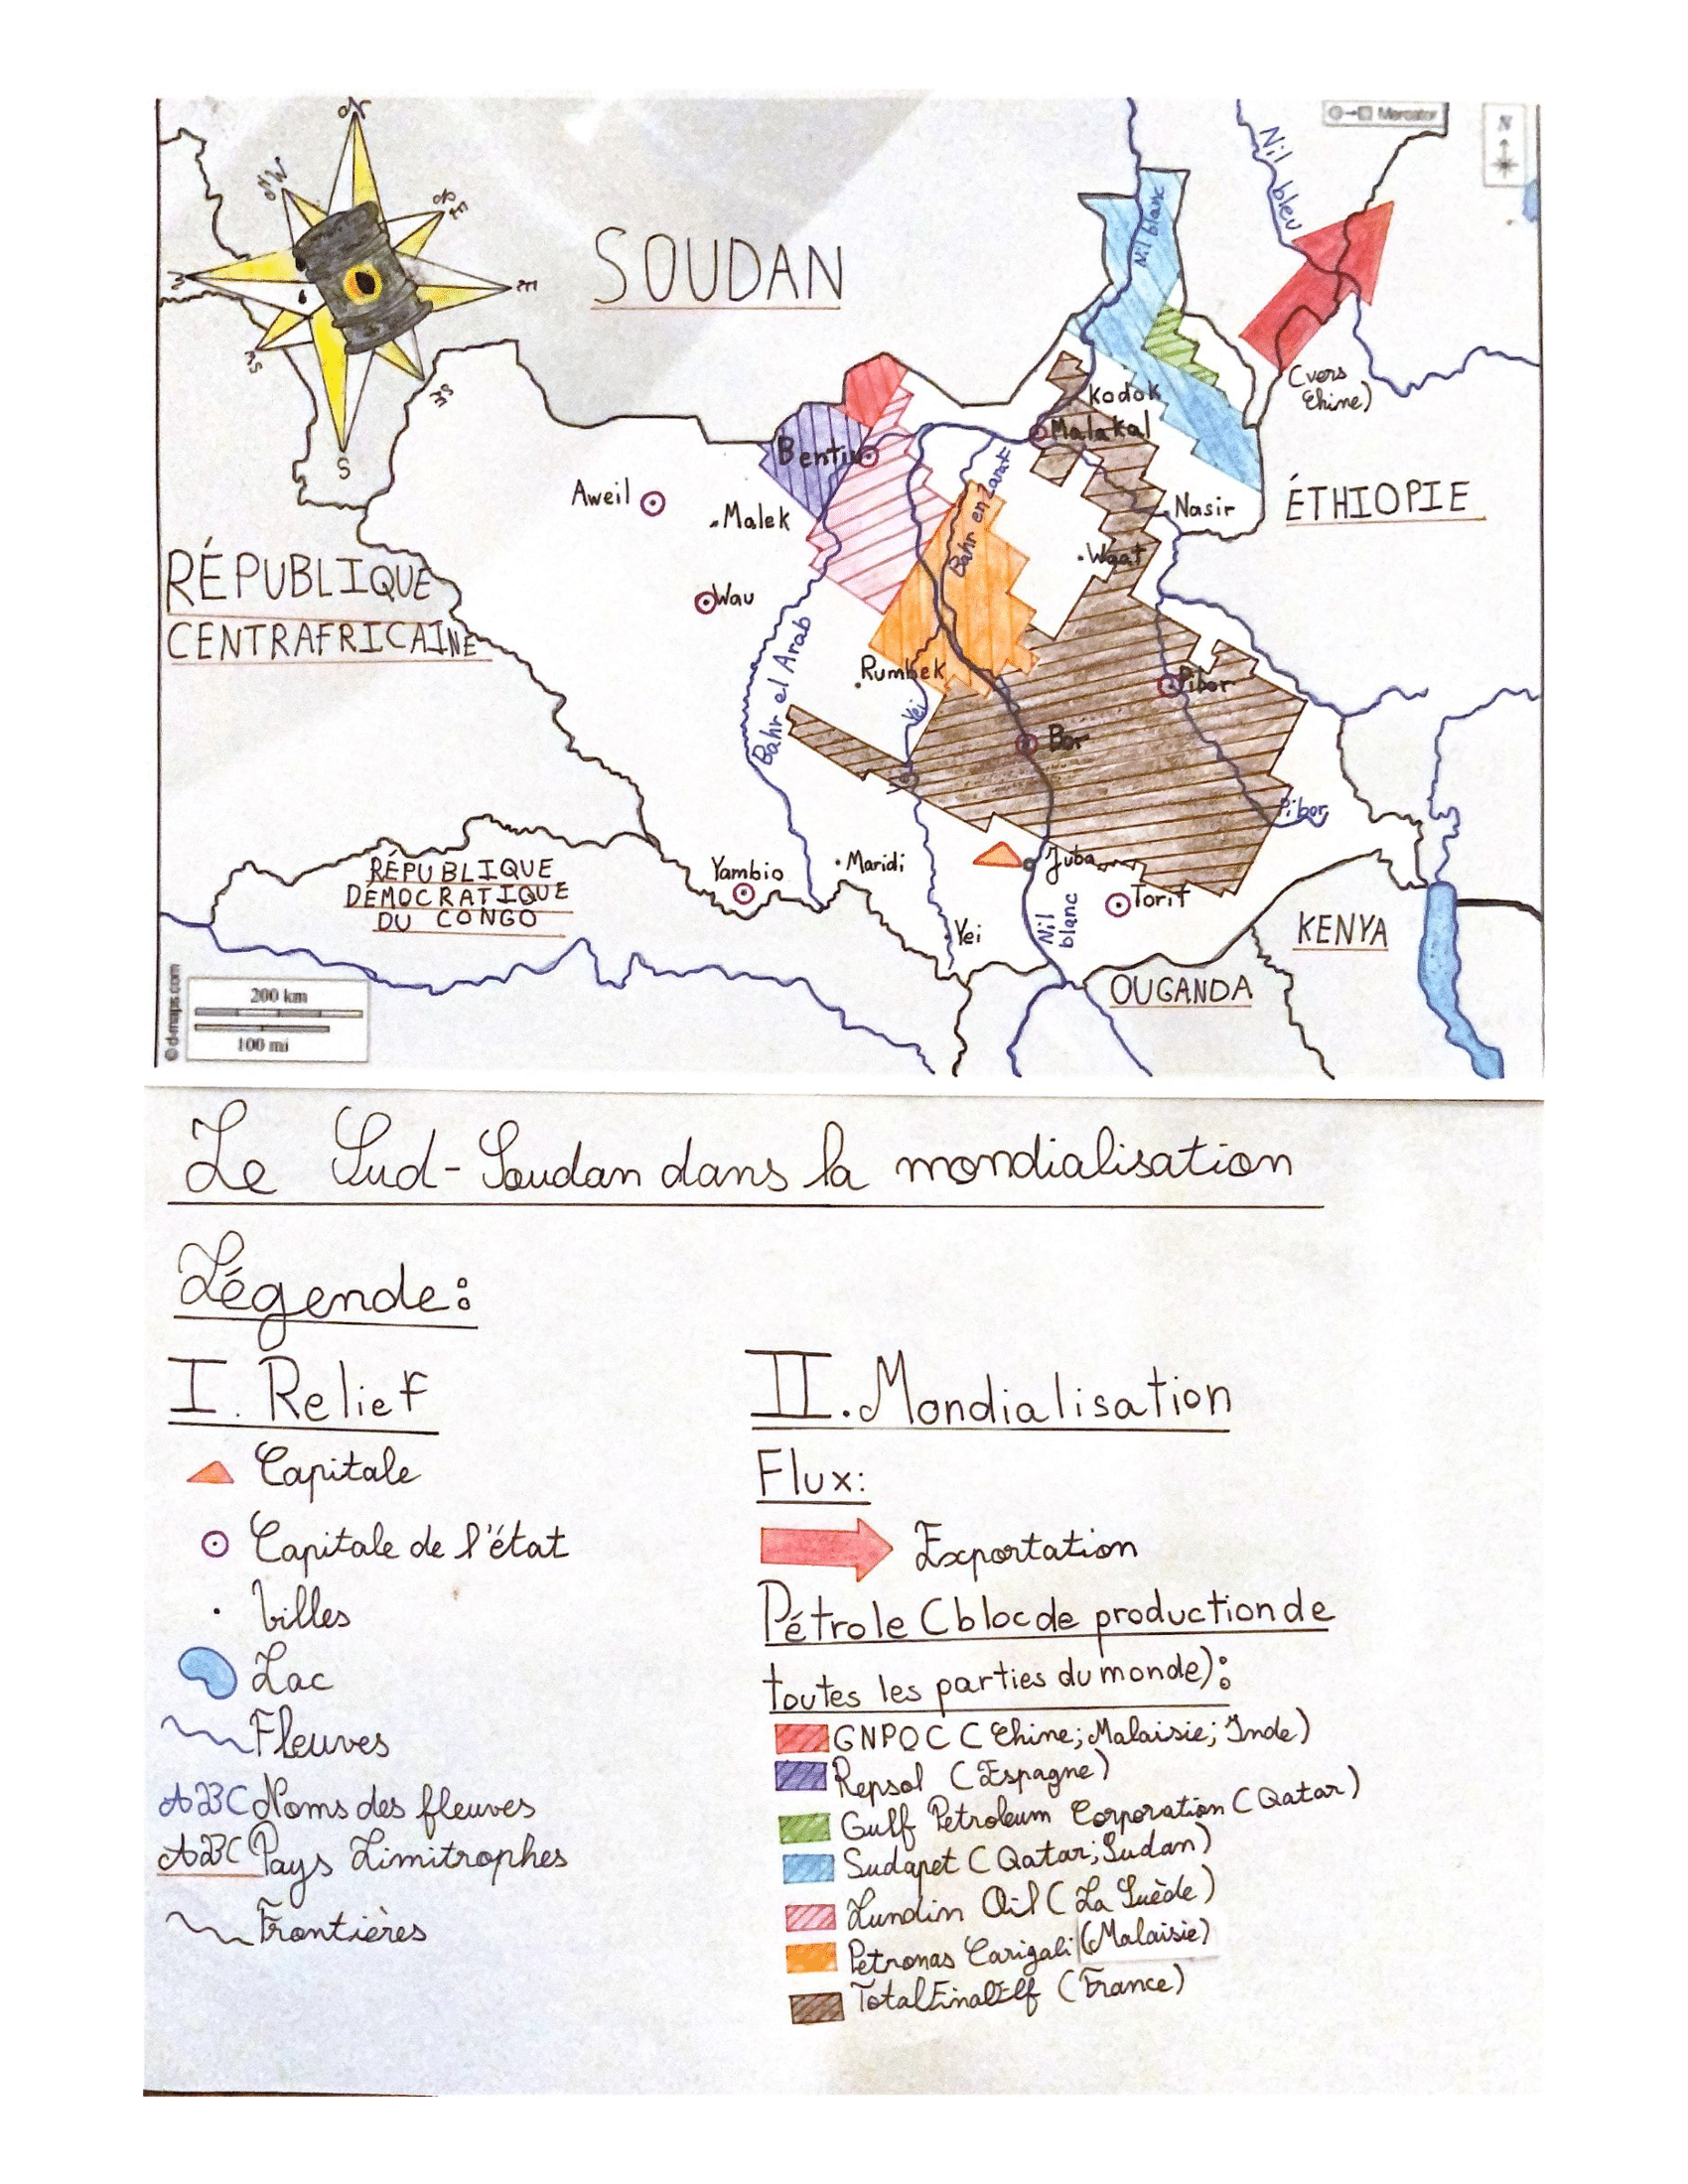 N
NW
NE
W
E
SW
SE
S
Mercator
N
Nil bleu
Nil blanc
SOUDAN
(vers
Chine)
Kodok
Malakal
Bentiu
Aweil
Malek
Bahr en Zaraf
Nasir
ÉTHIOPIE
Waat
RÉPUBLIQUE
CENTRAFRICAINE
Wau
Bahr el Arab
Rumbek
Yei
Pibor
Bor
Pibor
RÉPUBLIQUE
DÉMOCRATIQUE
DU CONGO
Yambio
Maridi
Juba
Torit
Nil
blanc
Yei
KENYA
OUGANDA
© d-maps.com
200 km
100 mi
Le Sud-Soudan dans la mondialisation
Légende:
I. Relief
Capitale
Capitale de l'état
Villes
Lac
Fleuves
ABC Noms des fleuves
ABC Pays Limitrophes
Frontières
II. Mondialisation
Flux:
Exportation
Pétrole (bloc de production de
toutes les parties du monde):
GNPOC (Chine; Malaisie; Inde)
Repsol (Espagne)
Gulf Petroleum Corporation (Qatar)
Sudapet (Qatar; Sudan)
Lundin Oil (La Suède)
Petronas Carigali (Malaisie)
TotalFinalElf (France)